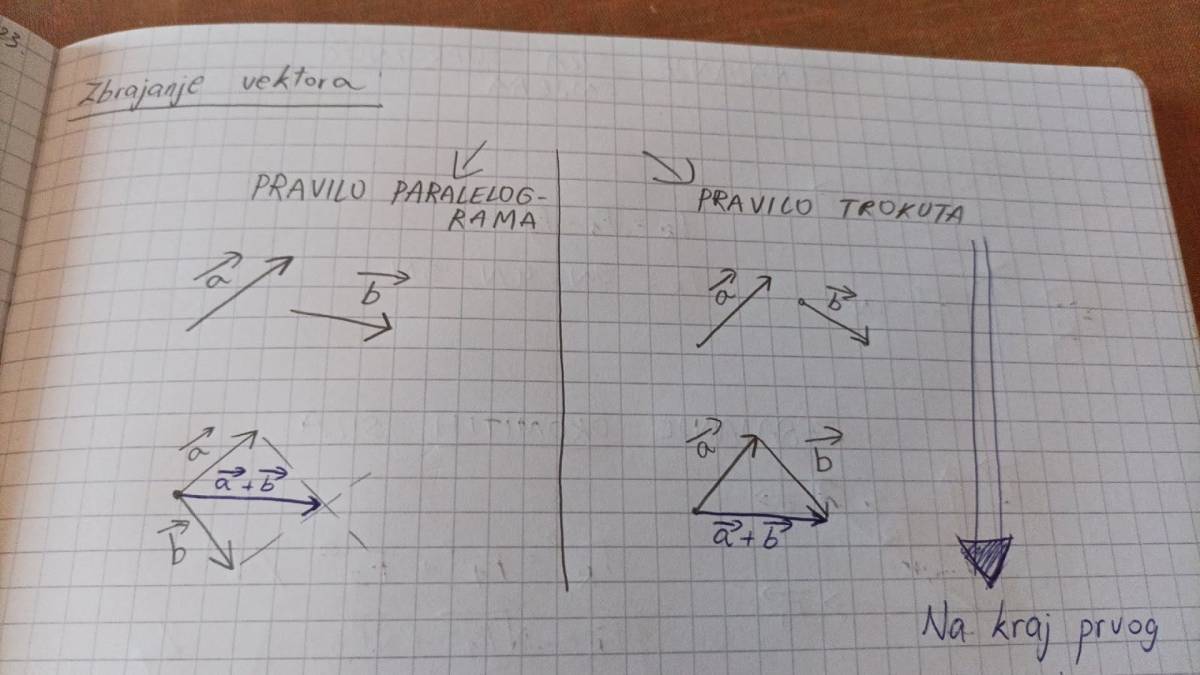 23.
Zbrajanje vektora
PRAVILO PARALELOG-
RAMA
a
b
a
a + b
b
PRAVILO TROKUTA
a
b
a
b
a + b
Na kraj prvog